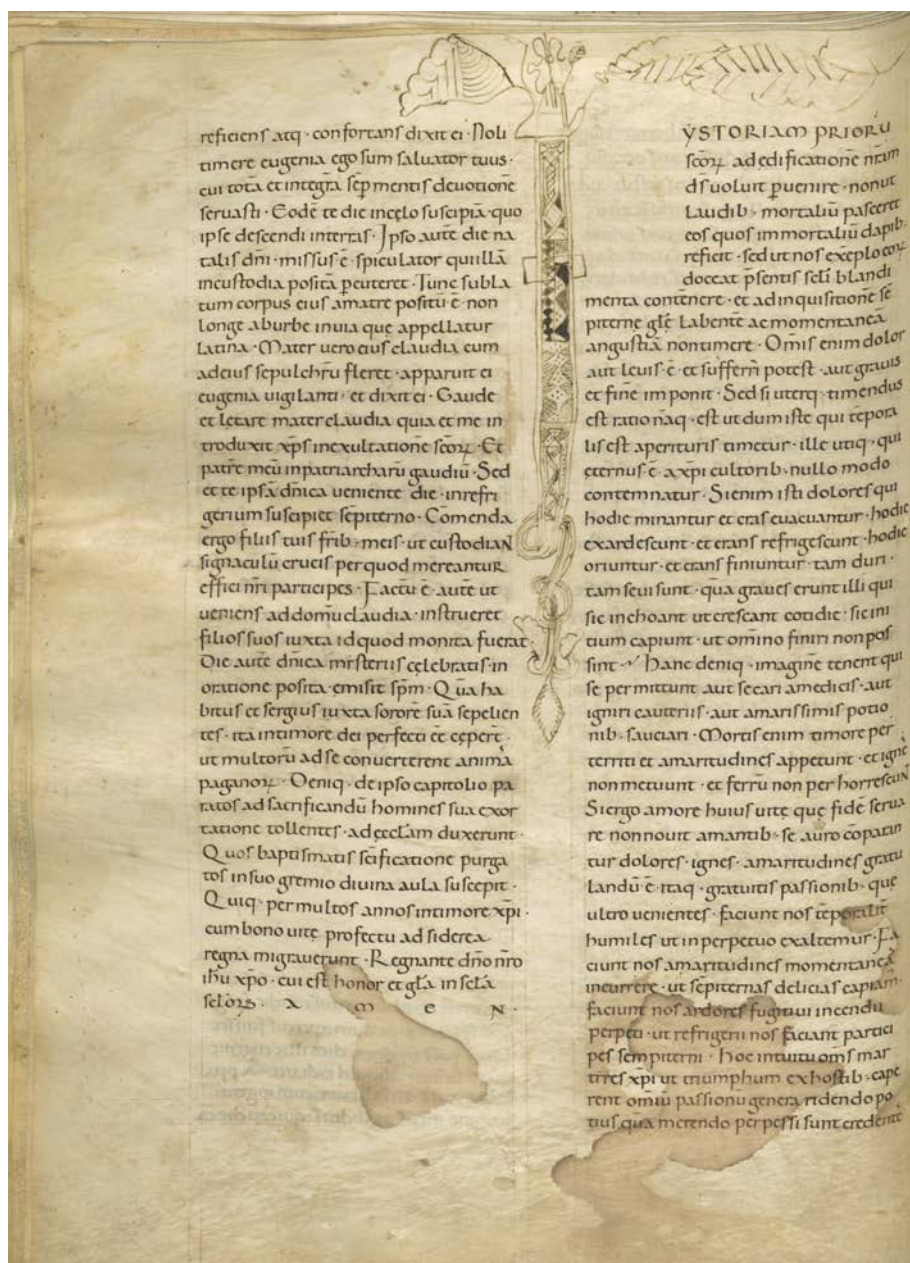 reficiens atq· confortans dixit ei· Noli
timere eugenia ego sum saluator tuus·
cui tota et integra sēp mentis deuotione
seruasti· Eodē te die incelo suscipiā· quo
ipse descendi interras· Ipso autē die na
talis dn̄i· missus ē· spiculator qui illā
incustodia positā ꝑcuteret· Tunc subla
tum corpus eius amatre positū ē· non
longe aburbe inuia que appellatur
latina· Mater uero eius claudia cum
adeius sepulchrū fleret· apparuit ei
eugenia uigilanti· et dixit ei· Gaude
et letare mater claudia quia et me in
troduxit xp̄s inexultatione sc̄oꝝ· Et
patrē meū inpatriarcharū gaudiū· Sed
et te ipsā dn̄ica ueniente die· inrefri
gerium suscipiet sēpiterno· Cōmenda
ergo filiis tuis fr̄ib· meis· ut custodiaN
signaculū crucis per quod mereantuR
effici nr̄i participes· Factū ē· autē ut
ueniens addomū claudia· instrueret
filios suos iuxta id quod monita fuerat·
Die autē dn̄ica misteriis cęlebratis· in
oratione posita· emisit sp̄m· Quā ha
bitus et sergius iuxta sororē suā sepelien
tes· ita intimore dei perfecti eē cęper̄t·
ut multorū ad se conuerterent animas
paganoꝝ· Deniq· de ipso capitolio pa
ratos ad sacrificandū homines sua exor
tatione tollentes· ad eccl̄am duxerunt·
Quos baptismatis sc̄ificatione purga
tos insuo gremio diuina aula suscepit·
Quiq· per multos annos intimore xp̄i·
cum bono uitę profectu ad siderea
regna migrauerunt· Regnante dn̄o nr̄o
ih̄u xp̄o· cui est honor et gl̄a in sc̄la
sc̄loꝝ· A M E N·
ẎSTORIAM PRIORŪ
sc̄oꝝ ad edificationē nr̄am
d̄s uoluit ꝑuenire· non ut
laudib· mortaliū pasceret
eos quos immortaliū dapib·
reficit· sed ut nos exēplo eoꝝ
doceat p̄sentis sc̄li blandi
menta contēnere· et ad inquisitionē sē
piternę gl̄ę labentē ac momentaneā
angustiā non timere· Om̄is enim dolor
aut leuis ē· et sufferri potest· aut grauis
et finē imponit· Sed si uterq· timendus
est ratio nāq· est ut dum iste qui tēpora
lis est aperituris timetur· ille utiq· qui
eternus ē· a xp̄i cultorib· nullo modo
contemnatur· Si enim isti dolores qui
hodie minantur et cras euacuantur· hodie
exardescunt· et crans refrigescunt· hodie
oriuntur· et crans finiuntur· tam duri·
tam seui sunt· quā graues erunt illi qui
sic inchoant ut crescant cotidie· sic ini
tium capiunt· ut om̄ino finiri non pos
sint· Hanc deniq· imaginē tenent qui
se permittunt aut secari amedicis· aut
igniri cauteriis· aut amarissimis potio
nib· sauciari· Mortis enim timore per
territi et amaritudines appetunt· et ignē
non metuunt· et ferrū non perhorrescuN
Si ergo amore huius uitę que fidē serua
re non nouit amantib· se auro cōpatin
tur dolores· ignes· amaritudines gratu
landū ē· itaq· gratuitis passionib· que
ultro uenientes· faciunt nos tēporalit̄
humiles ut in perpetuo exaltemur· Fa
ciunt nos amaritudines momentaneas
incurrere· ut sēpiternas delicias capiam·
faciunt nos ardores fugitiui incendii
perpeti· ut refrigerii nos faciant partici
pes sempiterni· Hoc intuitu om̄s mar
tires xp̄i ut triumphum ex hostib· cape
rent om̄iū passionū genera ridendo po
tius quā merendo perpessi sunt credentē